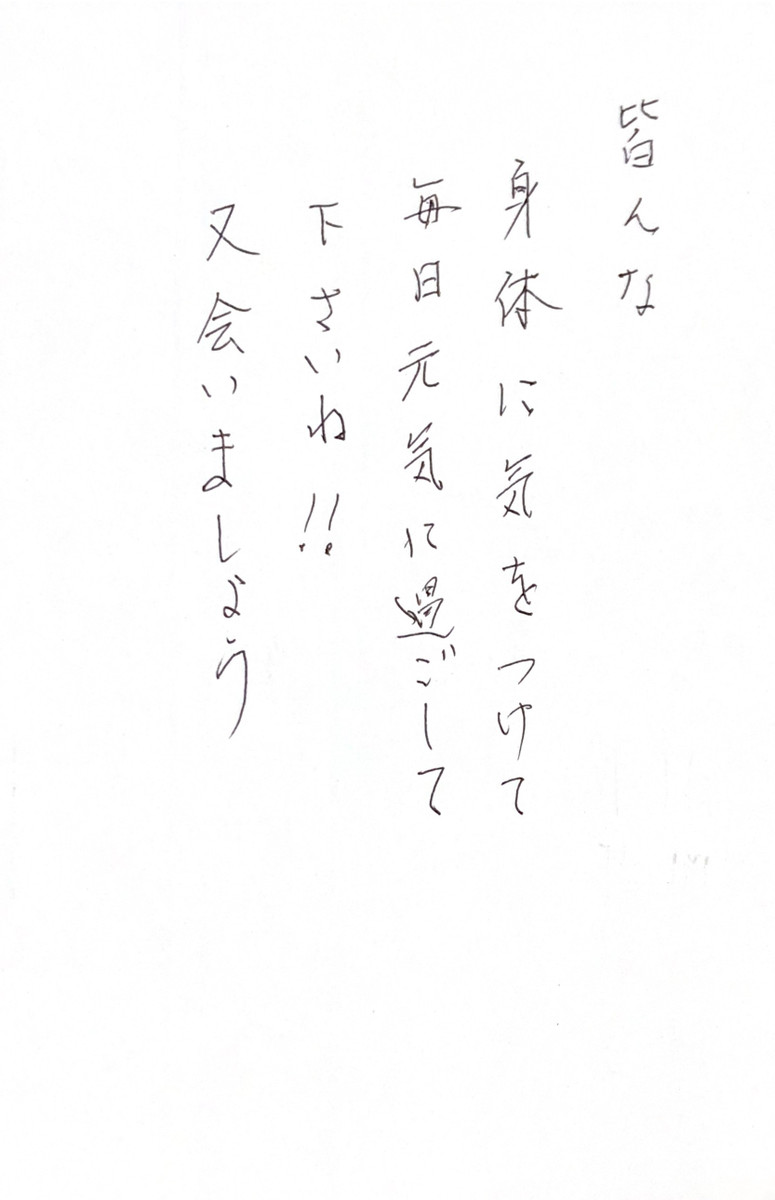 皆んな
身体に気をつけて
毎日元気に過ごして
下さいね!!
又会いましょう